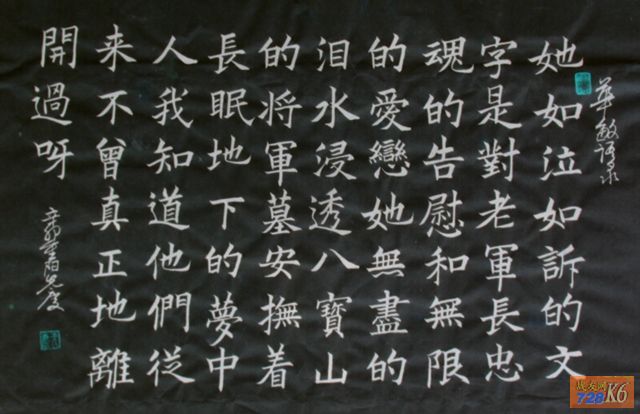 華敏
她如泣如訴的文
字是對老軍長忠
魂的告慰和無限
的愛戀她無盡的
泪水浸透八寶山
的将軍墓安撫着
長眠地下的夢中
人我知道他們従
来不曾真正地離
開過呀
辛卯
战友网
728K6